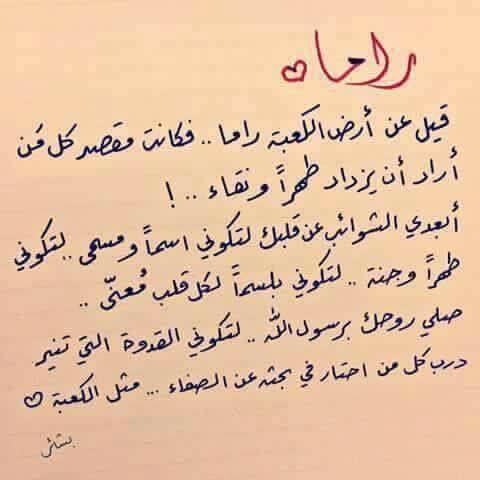 راما
قيل عن أرض الكعبة راما .. فكانت مقصد كل مَن
أراد أن يزداد طهراً ونقاء .. !
أبعدي الشوائب عن قلبك لتكوني اسماً ومسمى .. لتكوني
طهراً وجنة .. لتكوني بلسماً لكل قلب مُعنّى ..
صلي روحك برسول الله .. لتكوني القدوة التي تنير
درب كل من احتار في بحثه عن الصفاء ... مثل الكعبة ♡